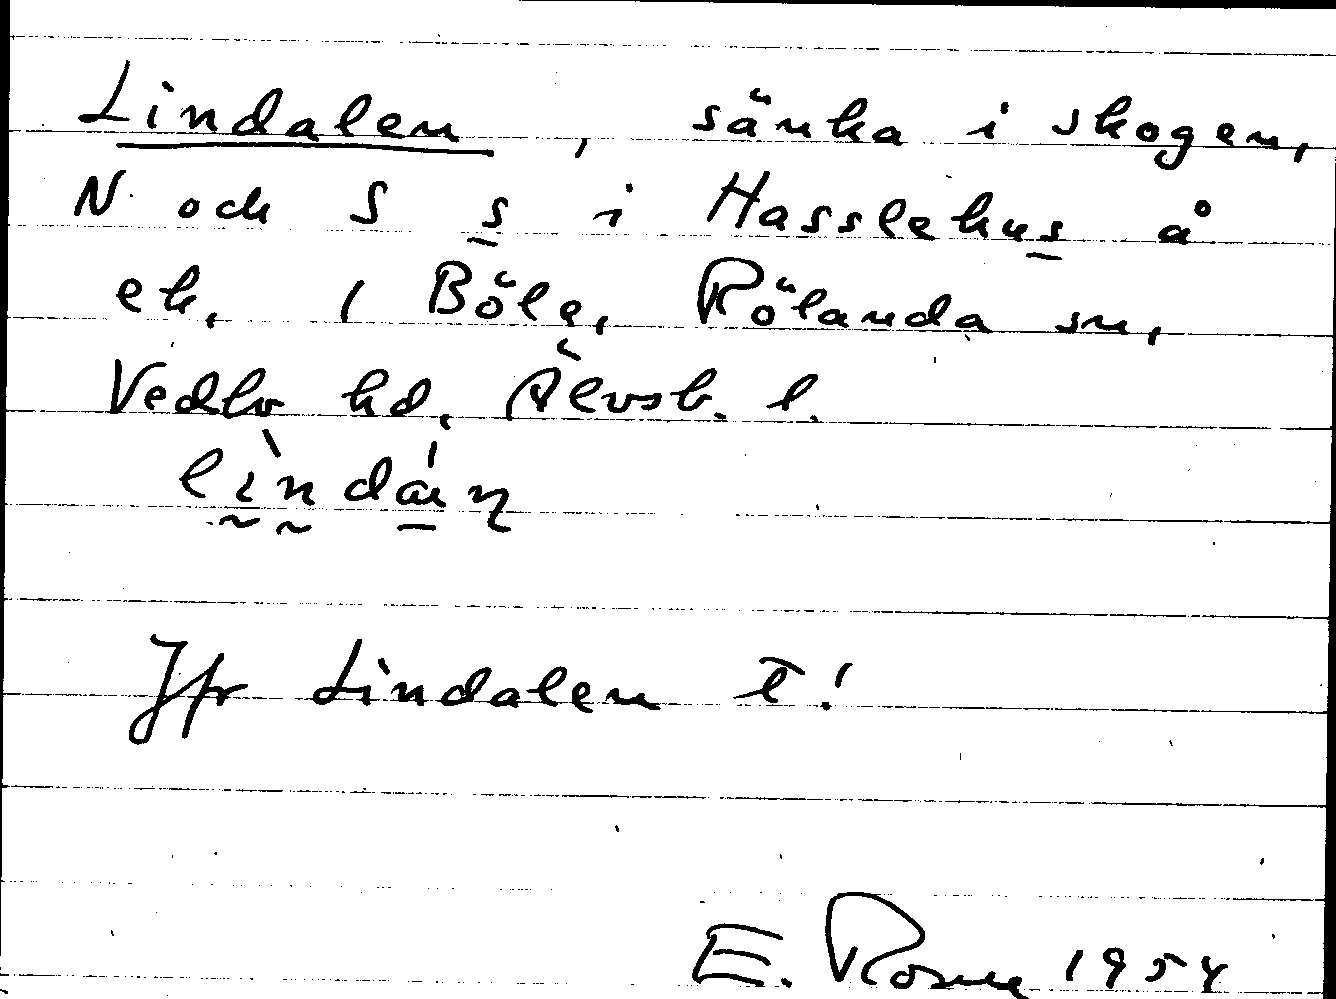 Lindalen, sänka i skogen,
N och S s i Hasslehus å
ek. 1 Böle, Rölanda sn,
Vedbo hd. Älvsb. l.
Jfr Lindalen T!
E. 1954